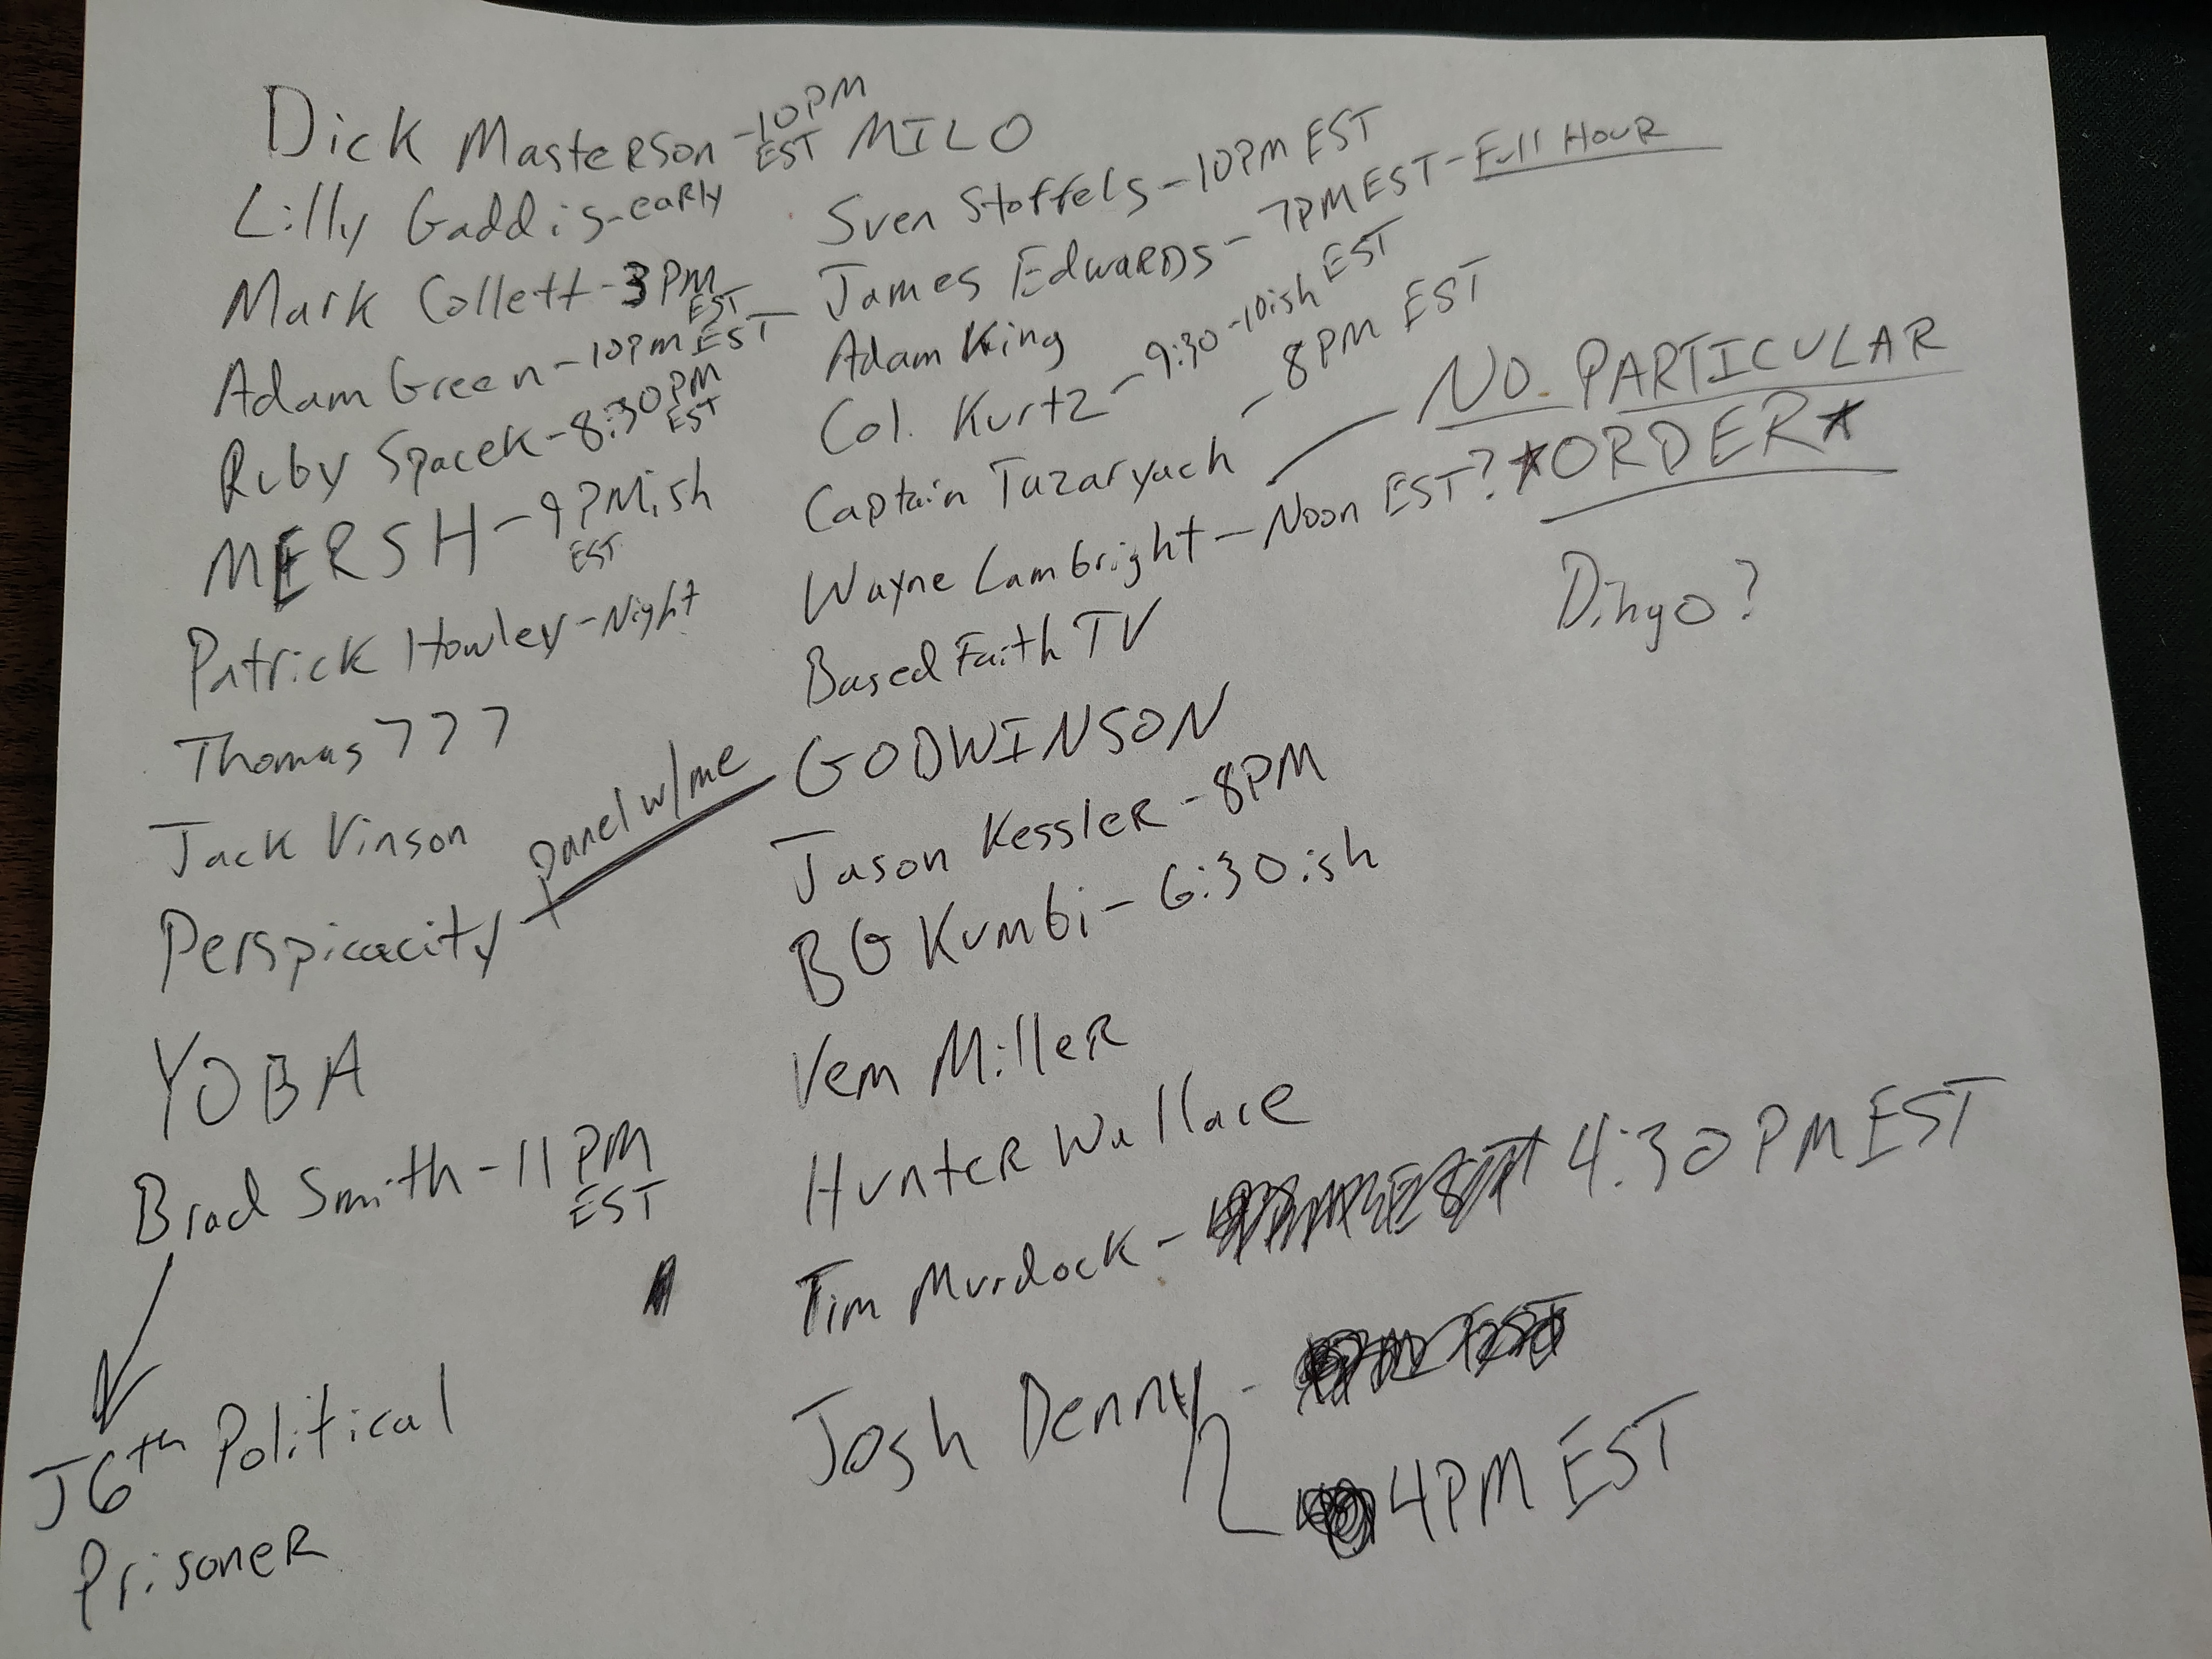 Dick Masterson - 10PM EST
Lilly Gaddis - early
Mark Collett - 3PM EST
Adam Green - 10pm EST -
Ruby Spacek - 8:30PM EST
MERSH - 9PMish EST
Patrick Howley - Night
Thomas 777
Jack Vinson
Perspicacity
panel w/me
YOBA
Brad Smith - 11PM EST
J6th Political
Prisoner
MILO
Sven Stoffels - 10PM EST
James Edwards - 7PM EST - Full Hour
Adam King
Col. Kurtz - 9:30 - 10ish EST
Captain Tazaryach - 8PM EST
Wayne Lambright - Noon EST?
Based Faith TV
GODWINSON
Jason Kessler - 8PM
BG Kumbi - 6:30ish
Vem Miller
Hunter Wallace
Tim Murdock - 4:30PM EST
Josh Denny -
4PM EST
NO PARTICULAR
*ORDER*
Dingo?